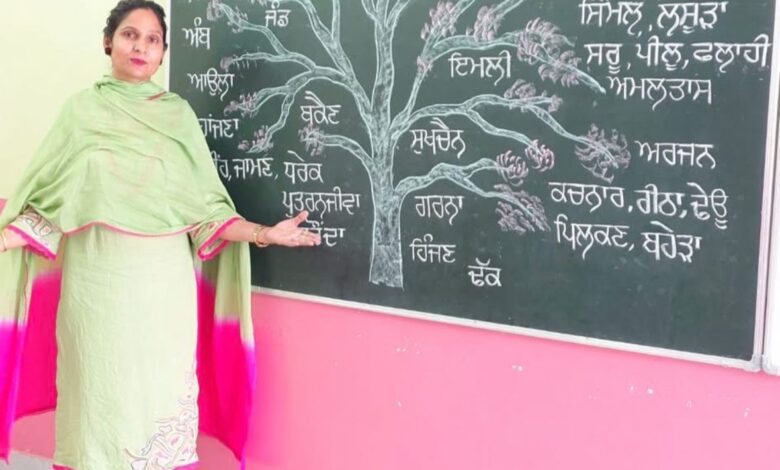 ਜੰਡ
ਅੰਬ
ਸਿੰਮਲ, ਲਸੂੜਾ
ਸਰੂ, ਪੀਲੂ, ਫਲਾਹੀ
ਇਮਲੀ
ਅਮਲਤਾਸ
ਆਉਲਾ
ਬਕੈਣ
ਸੁਖਚੈਨ
ਅਰਜਨ
ਜਾਮਣ, ਧਰੇਕ
ਪੁਤਰਨਜੀਵਾ
ਗਰਨਾ
ਕਚਨਾਰ, ਰੀਠਾ, ਢੇਊ
ਪਿਲਕਣ, ਬਹੇੜਾ
ਹਿੰਜਣ
ਢੱਕ